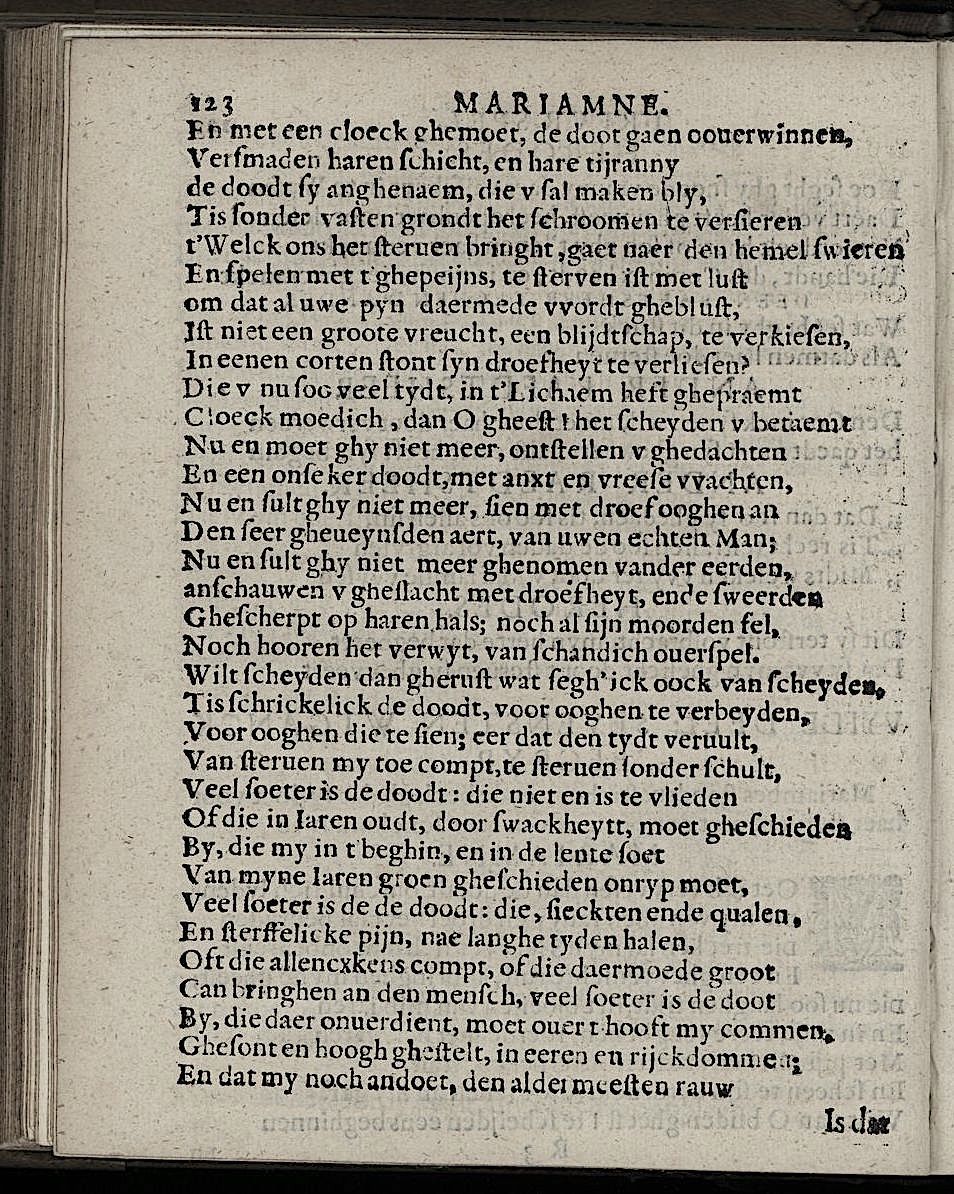 123 MARIAMNE.
En met een cloeck ghemoet, de doot gaen oouerwinnen,
Verſmaden haren ſchicht, en hare tijranny
de doodt ſy anghenaem, die v ſal maken bly,
Tis ſonder vaſten grondt het ſchroomen te verſieren
t'Welck ons het ſteruen bringht, gaet naer den hemel ſwieren
En ſpelen met t'ghepeijns, te ſterven iſt met luſt
om dat al uwe pyn daermede vvordt gheblust,
Iſt niet een groote vreucht, een blijdtſchap, te verkieſen,
In eenen corten ſtont ſyn droefheyt te verlieſen?
Die v nu ſoo veel tydt, in t'Lichaem heft ghepraemt
Cloeck moedich, dan O gheeſt! het ſcheyden v betaemt
Nu en moet ghy niet meer, ontſtellen v ghedachten
En een onſeker doodt, met anxt en vreeſe vvachten,
Nu en ſult ghy niet meer, ſien met droef ooghen an
Den ſeer gheueynſden aert, van uwen echten Man;
Nu en ſult ghy niet meer ghenomen vander eerden,
anſchauwen v gheſlacht met droefheyt, ende ſweerden
Gheſcherpt op haren hals; noch al ſijn moorden fel,
Noch hooren het verwyt, van ſchandich ouerſpel.
Wilt ſcheyden dan gheruſt wat ſegh'ick oock van ſcheyden,
Tis ſchrickelick de doodt, voor ooghen te verbeyden,
Voor ooghen die te ſien; eer dat den tydt veruult,
Van ſteruen my toe compt, te ſteruen ſonder ſchult,
Veel ſoeter is de doodt: die niet en is te vlieden
Of die in Iaren oudt, door ſwackheytt, moet gheſchieden
By, die my in t'beghin, en in de lente ſoet
Van myne Iaren groen gheſchieden onryp moet,
Veel ſoeter is de de doodt: die, ſieckten ende qualen,
En ſterffelicke pijn, nae langhe tyden halen,
Oft die allencxkens compt, of die daermoede groot
Can bringhen an den menſch, veel ſoeter is de doot
By, die daer onuerdient, moet ouer t hooft my commen,
Gheſont en hoogh gheſtelt, in eeren en rijckdommen;
En dat my noch andoet, den alder meeſten rauw
Is dat